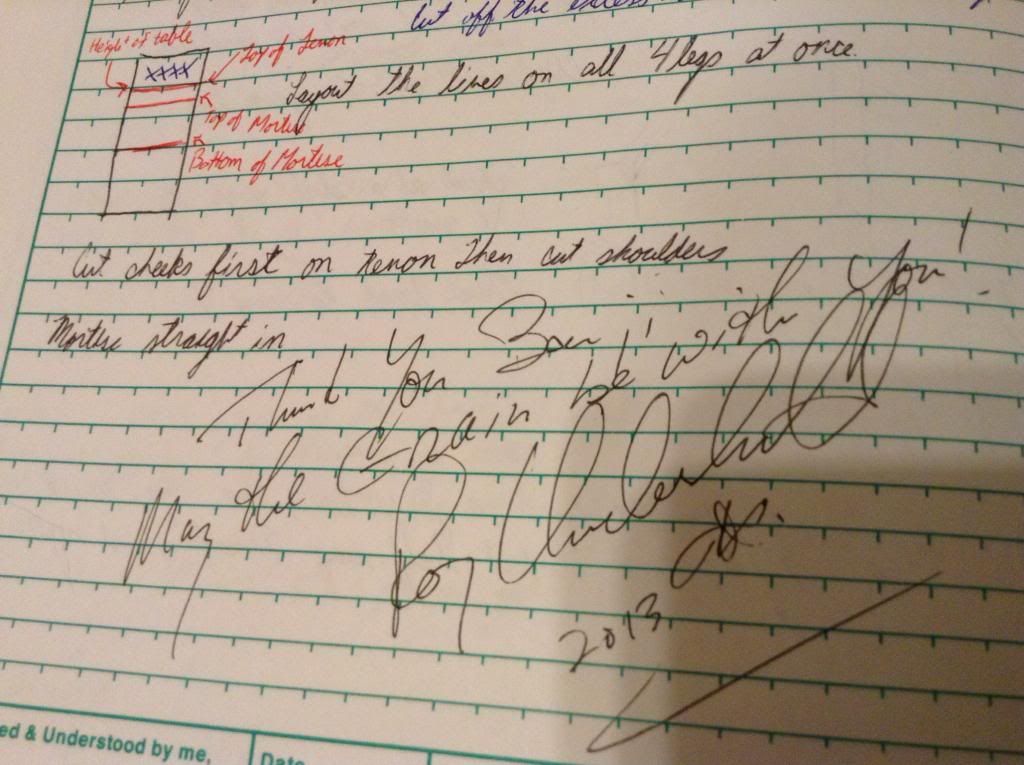 Cut off the excess
Height of table
Top of Tenon
XXXX
Layout the lines on all 4 legs at once.
Top of Mortise
Bottom of Mortise
Cut cheeks first on tenon then cut shoulders
Mortise straight in
Thank You Bori!!
May the Grain be with You!
Roy
Jr.
2013
ed & Understood by me,
Date